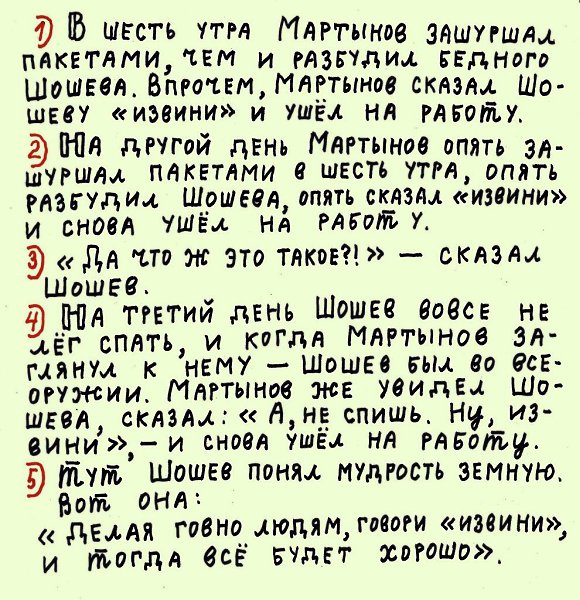 1) В ШЕСТЬ УТРА МАРТЫНОВ ЗАШУРШАЛ
ПАКЕТАМИ, ЧЕМ И РАЗБУДИЛ БЕДНОГО
ШОШЕВА. ВПРОЧЕМ, МАРТЫНОВ СКАЗАЛ ШО-
ШЕВУ «ИЗВИНИ» И УШЁЛ НА РАБОТУ.
2) НА ДРУГОЙ ДЕНЬ МАРТЫНОВ ОПЯТЬ ЗА-
ШУРШАЛ ПАКЕТАМИ В ШЕСТЬ УТРА, ОПЯТЬ
РАЗБУДИЛ ШОШЕВА, ОПЯТЬ СКАЗАЛ «ИЗВИНИ»
И СНОВА УШЁЛ НА РАБОТУ.
3) «ДА ЧТО Ж ЭТО ТАКОЕ?!» — СКАЗАЛ
ШОШЕВ.
4) НА ТРЕТИЙ ДЕНЬ ШОШЕВ ВОВСЕ НЕ
ЛЁГ СПАТЬ, И КОГДА МАРТЫНОВ ЗА-
ГЛЯНУЛ К НЕМУ — ШОШЕВ БЫЛ ВО ВСЕ-
ОРУЖИИ. МАРТЫНОВ ЖЕ УВИДЕЛ ШО-
ШЕВА, СКАЗАЛ: «А, НЕ СПИШЬ. НУ, ИЗ-
ВИНИ», — И СНОВА УШЁЛ НА РАБОТУ.
5) ТУТ ШОШЕВ ПОНЯЛ МУДРОСТЬ ЗЕМНУЮ.
ВОТ ОНА:
«ДЕЛАЯ ГОВНО ЛЮДЯМ, ГОВОРИ «ИЗВИНИ»,
И ТОГДА ВСЁ БУДЕТ ХОРОШО».